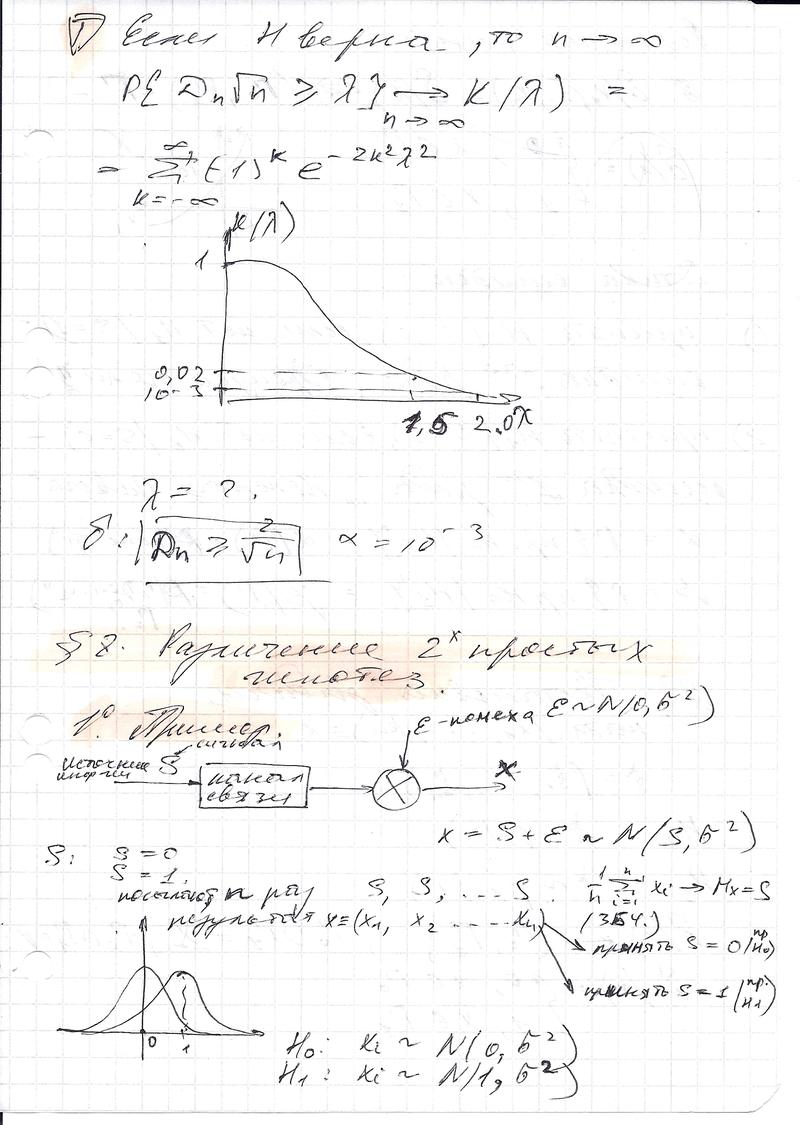 Т Если H верна, то n → ∞
P{ Dₙ√n ≥ λ } → K(λ) =
n → ∞
= ∑ (-1)ᵏ e^(-2k²λ²)
k = -∞
∞
K(λ)
1
0,02
10⁻³
1,5 2.0 λ
λ = ?
δ: Dₙ ≥ 2/√n α = 10⁻³
§ 2. Различение 2ˣ простых
гипотез.
1⁰. Пример.
ε - помеха ε ~ N(0, σ²)
сигнал
источник S
информ
канал
связи
x
x = S + ε ~ N(S, σ²)
S: S = 0
S = 1.
посылают n раз S, S, .... S. 1/n ∑ xᵢ → Mx = S
n
i=1
результат x = (x₁, x₂ .... xₙ) (ЗБЧ.)
принять S = 0 (пр. H₀)
принять S = 1 (пр. H₁)
0 1
H₀: xᵢ ~ N(0, σ²)
H₁: xᵢ ~ N(1, σ²)